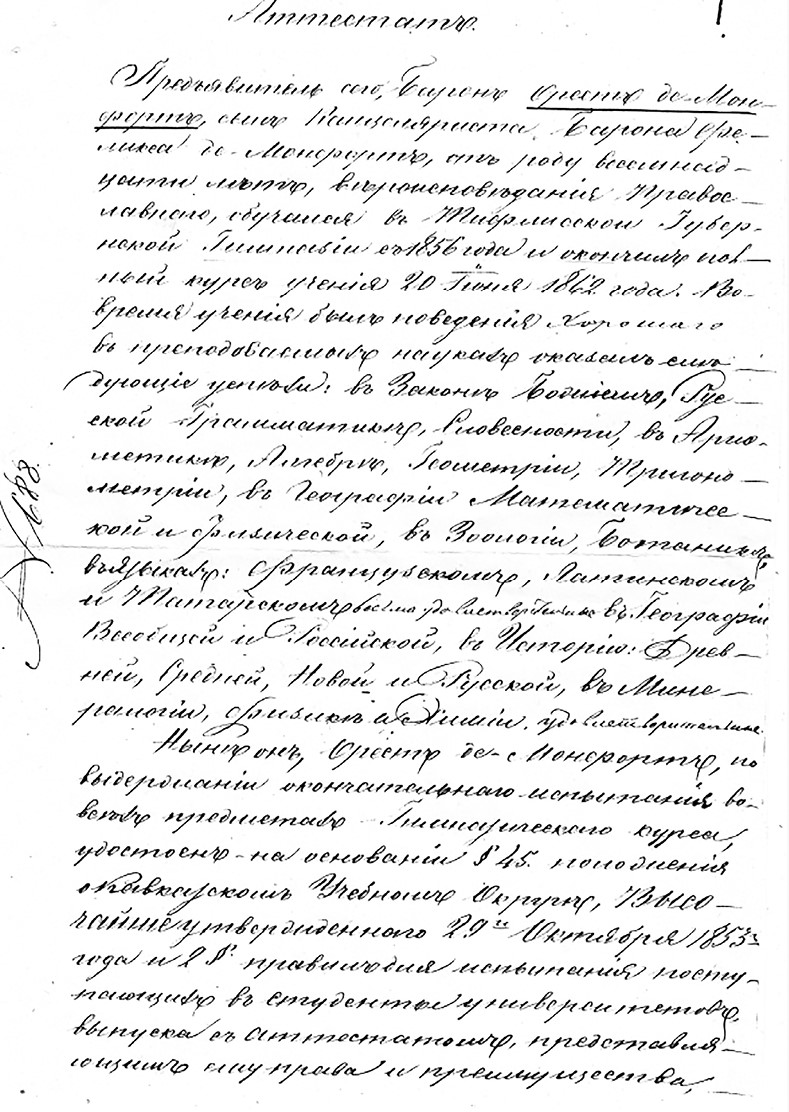 Аттестатъ.
Предъявитель сего, Баронъ Орестъ де-Мон-
фортъ, сынъ Канцеляриста Барона Фе-
ликса де-Монфортъ, отъ роду восемнад-
цати лѣтъ, вѣроисповѣданія Правос-
лавнаго, обучался въ Тифлисской Губер-
нской Гимназіи съ 1856 года и окончилъ пол-
ный курсъ ученія 20 Іюня 1862 года. Во-
время ученія былъ поведенія хорошаго
въ преподаваемыхъ наукахъ оказалъ слѣ-
дующіе успѣхи: въ Законѣ Божіемъ, Рус-
ской Грамматикѣ, Словесности, въ Ариѳ-
метикѣ, Алгебрѣ, Геометріи, Тригоно-
метріи, въ Географіи Математичес-
кой и физической, въ Зоологіи, Ботаникѣ,
въ языкахъ: Французскомъ, Латинскомъ
и Татарскомъ весьма удовлетворительно въ Географіи
Всеобщей и Россійской, въ Исторіи: Древ-
ней, Средней, Новой и Русской, въ Мине-
ралогіи, Физикѣ и Химіи, удовлетворительно.
Нынѣ онъ, Орестъ де-Монфортъ, по
выдержаніи окончательнаго испытанія во-
всѣхъ предметахъ Гимназическаго курса,
удостоенъ на основаніи § 45. положенія
о Кавказскомъ Учебномъ Округѣ, Высо-
чайше утвержденнаго 29го Октября 1853го
года и 2 § правилъ для испытанія посту-
пающихъ въ студенты университетовъ,
выпуска съ аттестатомъ, представля-
ющимъ ему права и преимущества,
№ 688.